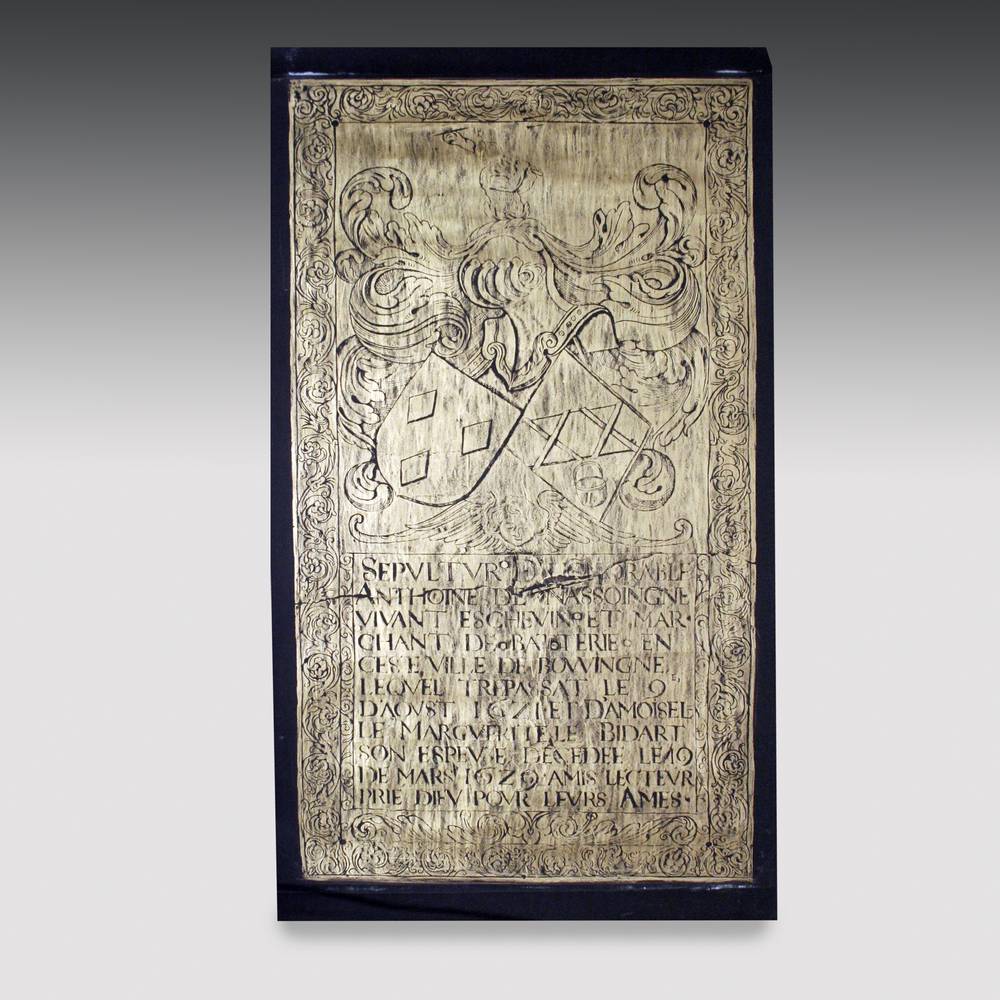 SEPVLTVRE D' HONORABLE
ANTHOINE DE NASSOINGNE
VIVANT ESCHEVIN ET MAR·
CHANT DE BATTERIE EN
CESTE VILLE DE BOVVINGNE
LEQVEL TREPASSAT LE 9
D'AOVST 1621 ET D'AMOISEL
LE MARGVERITE LE BIDART
SON ESPEVSE DECEDEE LE 19
DE MARS 1629 AMIS LECTEVR
PRIE DIEV POVR LEVRS AMES·